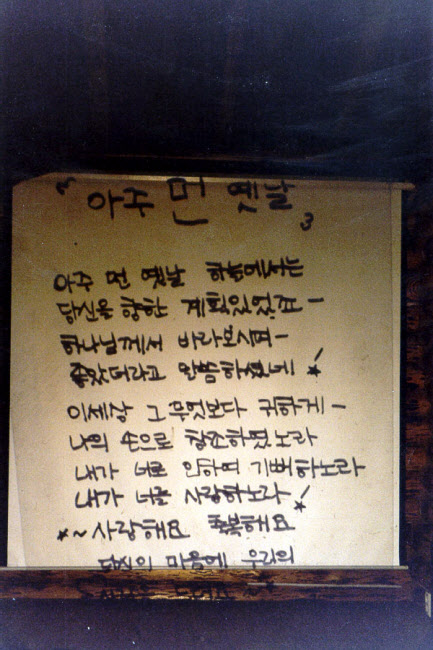 아주 먼 옛날
아주 먼 옛날 하늘에서는
당신을 향한 계획있었죠 -
하나님께서 바라보시며 -
좋았더라고 말씀하셨네
이세상 그 무엇보다 귀하게 -
나의 손으로 창조하였노라
내가 너로 인하여 기뻐하노라
내가 너를 사랑하노라
~ 사랑해요 축복해요
당신의 마음에 우리의